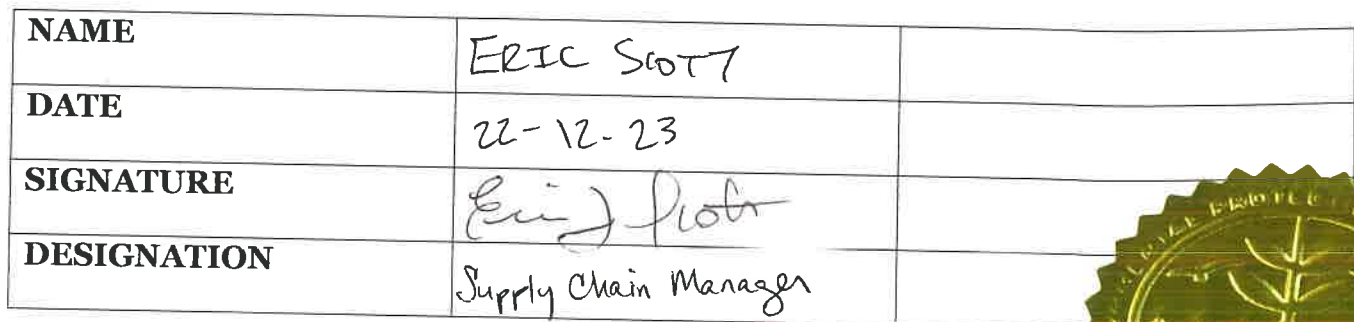 NAME ERIC SCOTT
DATE 22-12-23
SIGNATURE Eric J Scott
DESIGNATION Supply Chain Manager